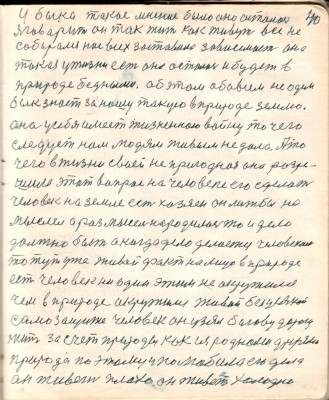 40
У быка такое мнение было оно осталось
Я говорит он так жить как живут все не
собирался нас всех заставила зависимость она
такая у жизни есть она осталась и будет в
природе бедными. об этом обо всем не один
бык знает за нашу такую в природе землю.
она у себя имеет жизненною войну то чего
следует нам людям живым не дала. А то
чего в жизни своей не природная она разре
шила этот вопрос на человеке его сделать
человек на земле есть хозяен он чтобы на
мыслил а раз мысел народилась то и дело
должно быть а когда дело делается человеком
то тут уже живой факт на лицо в природе
есть человек ни один этим не окружился
чем в природе окружился живой без
само защите человек он узял богову дорогу
жить за счет природы как их родного друга
природа по этому и полюбила его дела
он живет плохо, он живет холодно